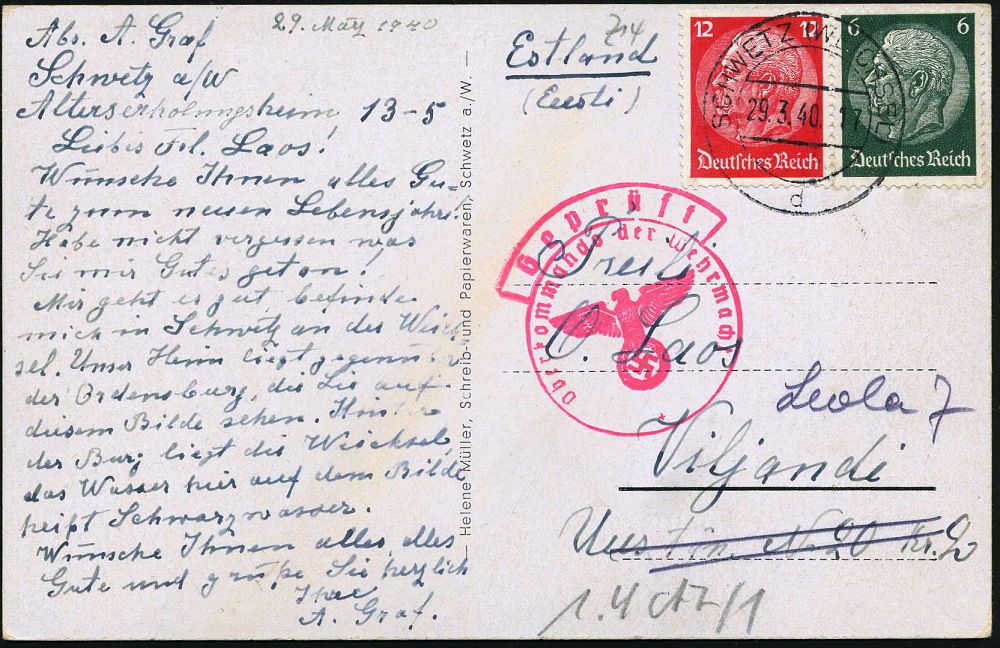 29. März 1940
Abs. A. Graf
Schwetz a/W
Alterserholungsheim 13-5
Liebes Frl. Laos!
Wünsche Ihnen alles Gu-
te zum neuen Lebensjahre!
Habe nicht vergessen was
Sie mir Gutes getan!
Mir geht es gut befinde
mich in Schwetz an der Weich
sel. Unser Heim liegt gegenüber
der Ordensburg, die Sie auf
diesem Bilde sehen. Hinter
der Burg liegt die Weichsel,
das Wasser hier auf dem Bilde
heißt Schwarzwasser.
Wünsche Ihnen alles, alles
Gute und grüße Sie herzlich
Ihre
A. Graf.
— Helene Müller, Schreib- und Papierwaren, Schwetz a./W. —
Estland
(Eesti)
12 12
Deutsches Reich
6 6
Deutsches Reich
SCHWETZ (WEICHSEL)
29.3.40. 17
d
Geprüft
Oberkommando der Wehrmacht
Preili
O. Laos
Leola 7
Viljandi
Uus tän. No 20 kr. 2